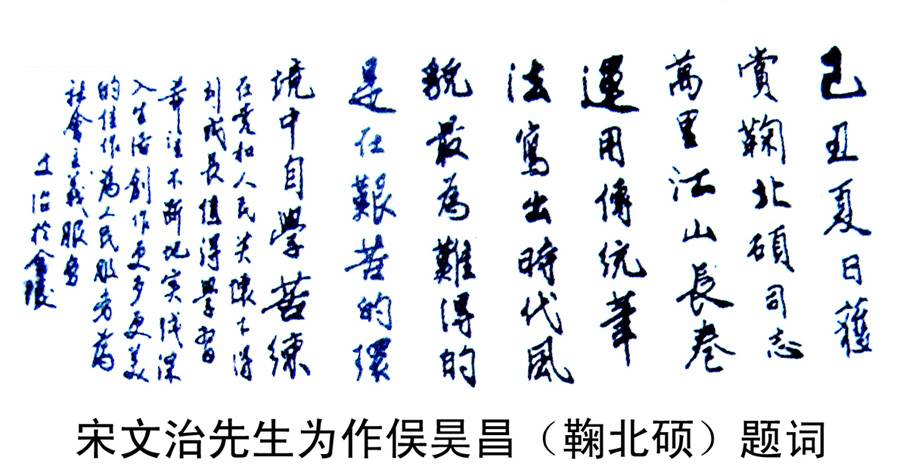 己丑夏日獲
賞鞠北碩同志
萬里江山長卷
運用傳統筆
法寫出時代風
貌最為難得的
是在艱苦的環
境中自學苦練
在党和人民关懷下得
到成長值得學習
希不断地实践深
入生活創作更多更美
的佳作為人民服务為
社會主義服务
文治於金陵
宋文治先生为作俣昊昌（鞠北硕）题词